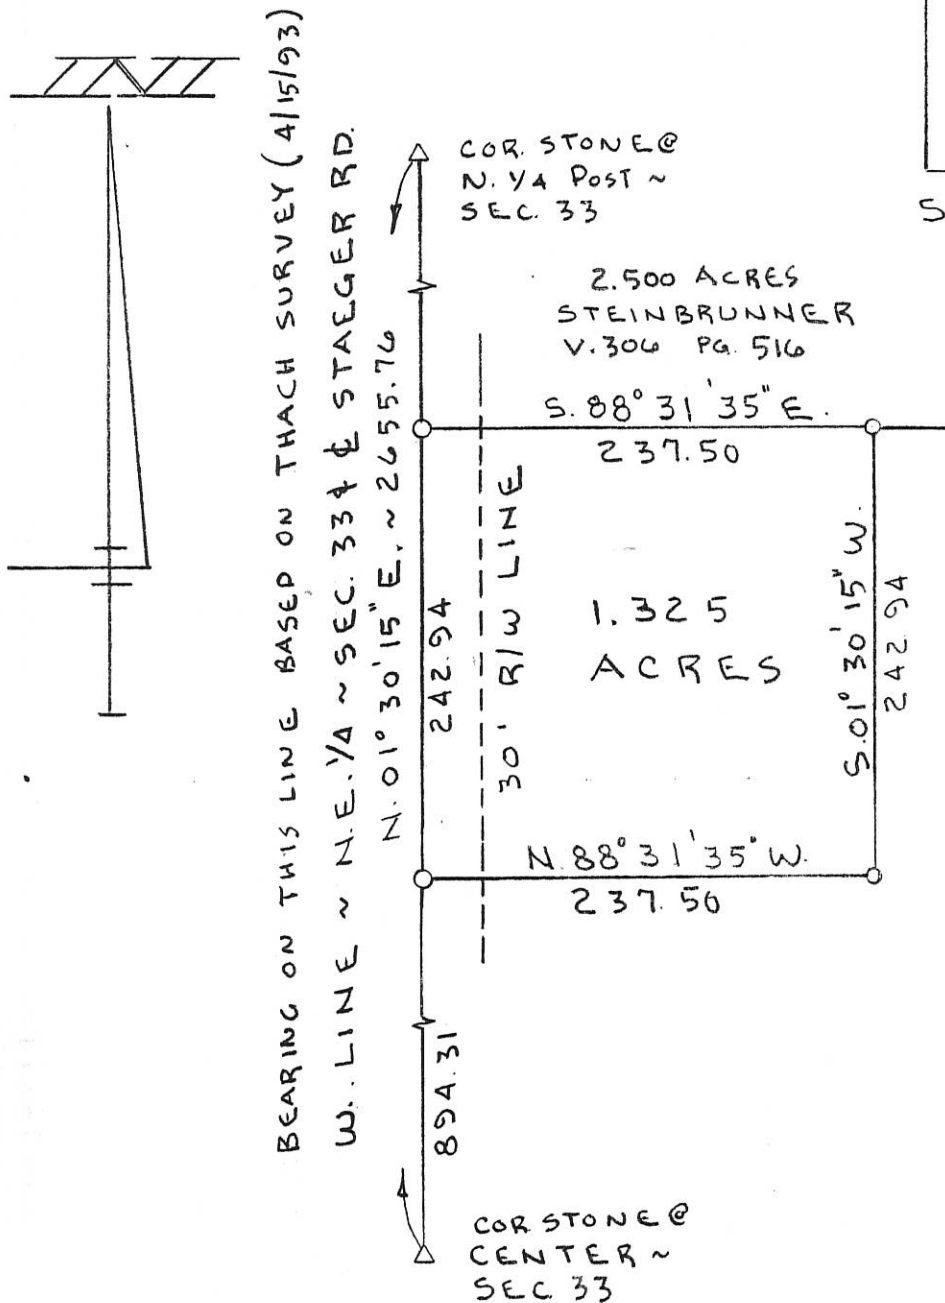 BEARING ON THIS LINE BASED ON THACH SURVEY (4/15/93)
W. LINE ~ N.E. 1/4 ~ SEC. 33 & ℄ STAEGER RD.
N. 01° 30' 15" E. ~ 2655.76
COR. STONE @
N. 1/4 POST ~
SEC. 33
S
2.500 ACRES
STEINBRUNNER
V. 306 PG. 516
S. 88° 31' 35" E.
237.50
242.94
30' R/W LINE
1.325
ACRES
S. 01° 30' 15" W.
242.94
N. 88° 31' 35" W.
237.50
894.31
COR STONE @
CENTER ~
SEC 33